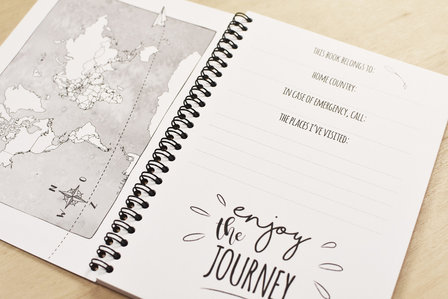 THIS BOOK BELONGS TO:
HOME COUNTRY:
IN CASE OF EMERGENCY, CALL:
THE PLACES I'VE VISITED:
enjoy
the
JOURNEY
N
W
S